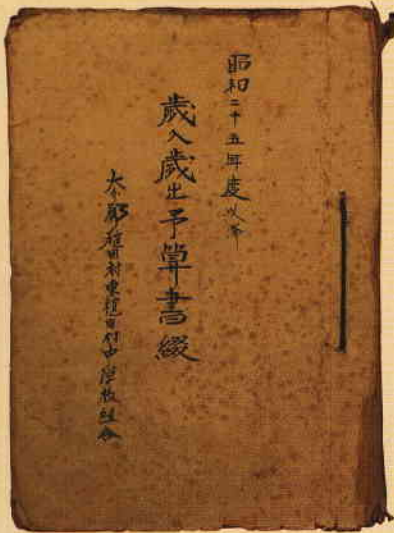 昭和二十五年度以降
歳入歳出予算書綴
大分郡稙田村東稙田村中学校組合